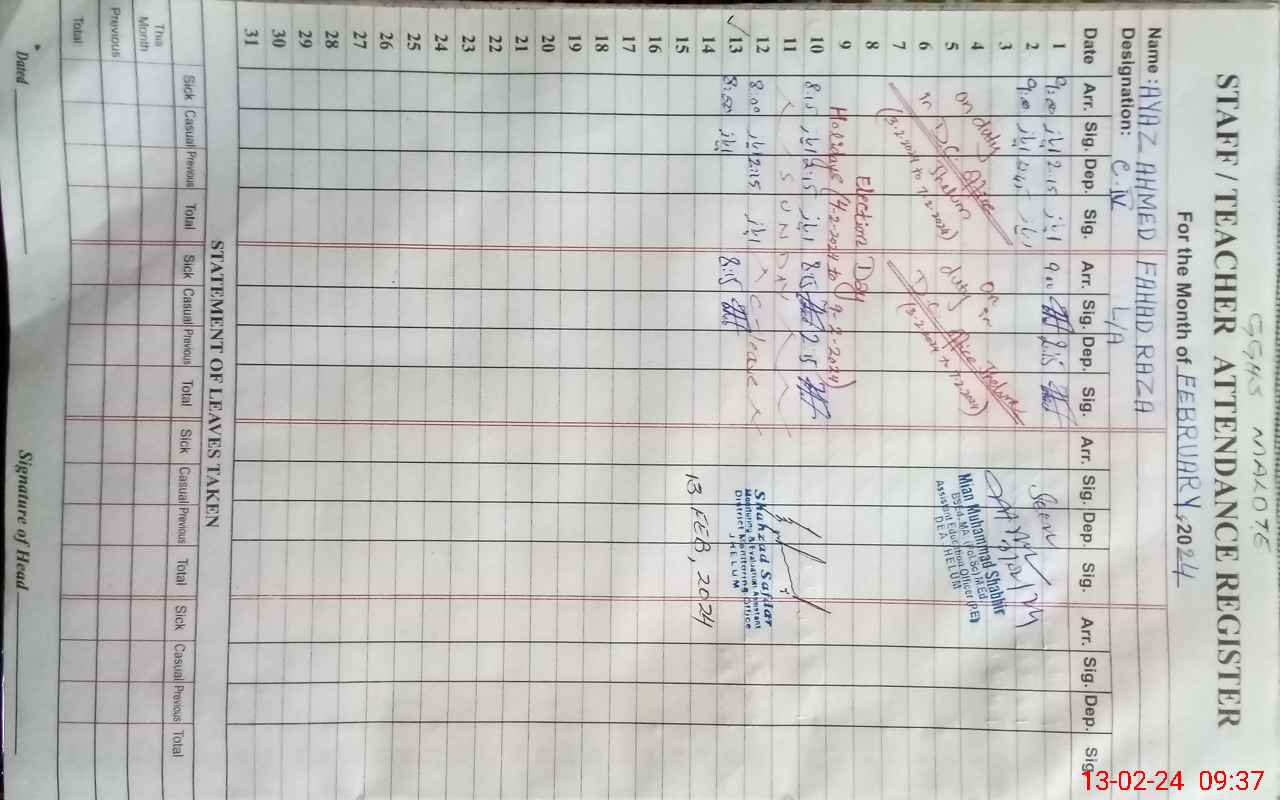 GGHS MALOTE
STAFF / TEACHER ATTENDANCE REGISTER
For the Month of FEBRUARY, 2024
Name : AYAZ AHMED FAHAD RAZA
Designation: C.IV L/A
Date Arr. Sig. Dep. Sig. Arr. Sig. Dep. Sig. Arr. Sig. Dep. Sig. Arr. Sig. Dep. Sig
1 9:00 ایاز 2:15 ایاز 9:00 2:15
2 9:00 ایاز ایاز
3
4
5
6
7
on duty
in D.C. Office
Jhelum
(3.2.2024 to 7.2.2024)
on
duty in
D.C. Office Jhelum
(3.2.2024 to 7.2.2024)
Seen
Mian Muhammad Shabbir
BSEd, MA (Pol.Sc) M.Ed
Assistant Education Officer (PE)
DEA JHELUM
8 Election Day
9 Holidays (4-2-2024 to 9-2-2024)
10 8:15 ایاز 2:15 ایاز 8:15 2:15
11 S U N D A Y
12 8:00 ایاز 2:15 ایاز C-leave
13 8:00 ایاز 8:15
Shahzad Safdar
Monitoring & Evaluation Assistant
District Monitoring Office
JHELUM
14
15
13 FEB, 2024
16
17
18
19
20
21
22
23
24
25
26
27
28
29
30
31
STATEMENT OF LEAVES TAKEN
Sick Casual Previous Total Sick Casual Previous Total Sick Casual Previous Total Sick Casual Previous Total
This Month
Previous
Total
Dated
Signature of Head
13-02-24 09:37